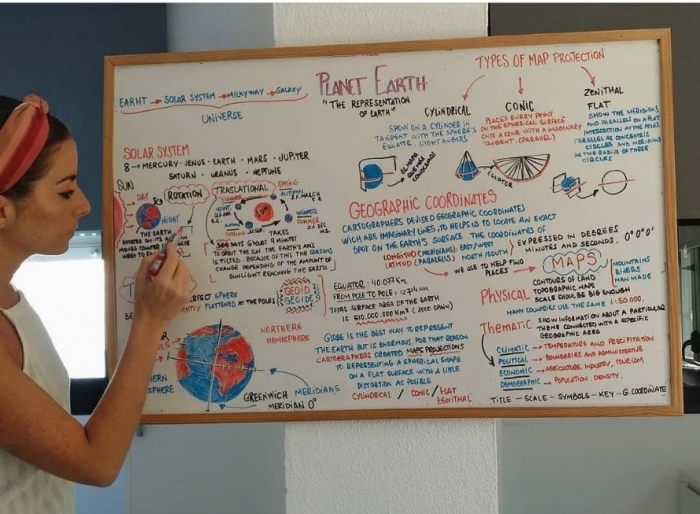 PLANET EARTH
"THE REPRESENTATION
OF EARTH"
EARHT → SOLAR SYSTEM → MILKYWAY → GALAXY
UNIVERSE
SOLAR SYSTEM
8 → MERCURY · VENUS · EARTH · MARS · JUPITER
SATURN · URANUS · NEPTUNE
SUN
DAY
NIGHT
ROTATION
THE EARTH
TRASLATIONAL
SPRING
SUMMER
AUTUMN
WINTER
SUMMER
SPRING
SUN
TAKES
365 DAYS 6 HOURS 9 MINUTES
TO ORBIT THE SUN. THE EARTH'S AXIS
IS TILTED. BECAUSE OF THIS THE SEASONS
CHANGE DEPENDING OF THE AMOUNT OF
SUNLIGHT REACHING THE EARTH
PERFECT SPHERE
FLATTENED AT THE POLES
GEOID
GEOIDE
EQUATOR: 40.077Km
FROM POLE TO POLE:
TOTAL SURFACE AREA OF THE EARTH
IS 510,000,000 Km2
NORTHERN
HEMISPHERE
SPHERE
GREENWICH
MERIDIAN 0°
MERIDIANS
GLOBE IS THE BEST WAY TO REPRESENT
THE EARTH BUT IS ENORMOUS, FOR THAT REASON
CARTOGRAPHERS CREATED MAPS PROJECTIONS
TO REPRESENTING A SPHERICAL SHAPE
ON A FLAT SURFACE WITH A LITTLE
DISTORTION AS POSIBLE
CYLINDRICAL / CONIC / FLAT
ZENITHAL
TYPES OF MAP PROJECTION
CYLINDRICAL
SHOW ON A CYLINDER IN
TANGENT WITH THE SPHERE'S
EQUATOR.
EL MAPA
QUE MÁS
CONOCEMOS
CONIC
PLACES EVERY POINT
ON THE SPHERICAL SURFACE
ONTO A CONE WITH A IMAGINARY
TANGENT. (PARALEL)
EQUATOR
ZENITHAL
FLAT
SHOW THE MERIDIANS
AND PARALLELS ON A FLAT
INTERSECTION AT THE POLES
PARALLEL AS CONCENTRIC
CIRCLES AND MERIDIANS
AS THE RADIUS OF THESE
CIRCLES
GEOGRAPHIC COORDINATES
CARTOGRAPHERS DEVISED GEOGRAPHIC COORDINATES
WICH ARE IMAGINARY LINES, TO HELP US TO LOCATE AN EXACT
SPOT ON THE EARTH'S SURFACE. THE COORDINATES OF
LONGITUD (MERIDIANS): EAST/WEST
LATITUD (PARALELS): NORTH/SOUTH
EXPRESSED IN DEGREES
MINUTES AND SECONDS. 0°0'0"
WE USE TO HELP FIND
PLACES
MAPS
PHYSICAL
CONTOURS OF LAND
TOPOGRAPHIC MAPS
SCALE SHOULD BE BIG ENOUGH
MOUNTAINS
RIVERS
MAN MADE
MANY COUNTRIES USE THE SAME 1:50.000.
THEMATIC
SHOW INFORMATION ABOUT A PARTICULAR
THEME CONNECTED WITH A ESPECIFIC
GEOGRAPHIC AREA
CLIMATIC → TEMPERATURE AND PRECIPITATION
POLITICAL → BOUNDARIES AND ADMINISTRATIVE
ECONOMIC → AGRICULTURE, INDUSTRY, TOURISM
DEMOGRAPHIC → POPULATION DENSITY.
TITLE - SCALE - SYMBOLS - KEY - G. COORDINATE